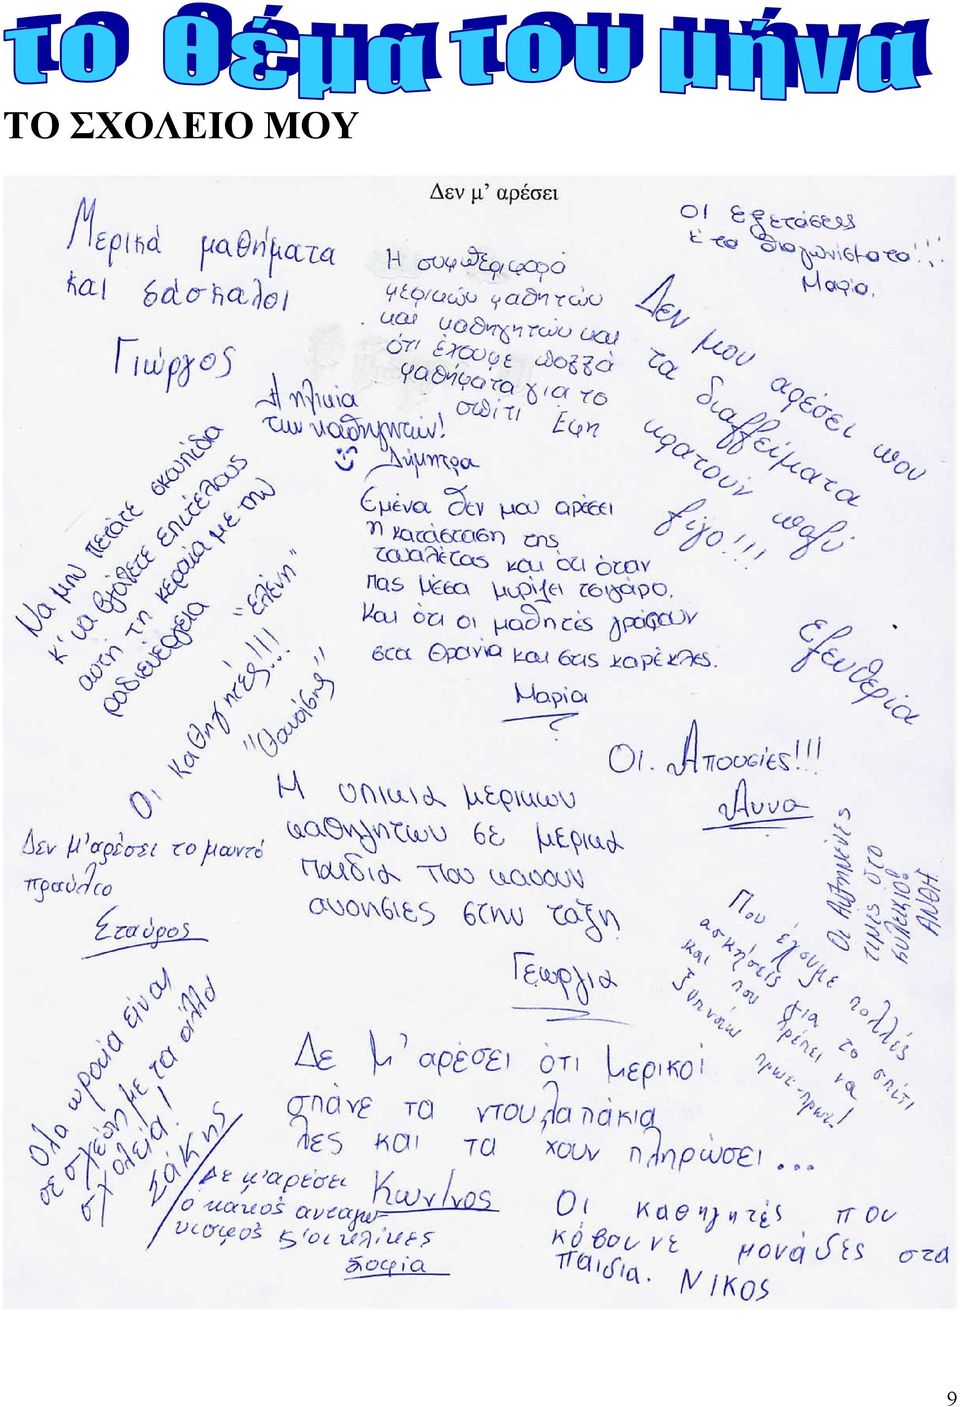 το θέμα του μήνα
ΤΟ ΣΧΟΛΕΙΟ ΜΟΥ
Δεν μ’ αρέσει
Μερικά μαθήματα
και δάσκαλοι
Γιώργος
Η συμπεριφορά
μερικών μαθητών
και καθηγητών και
ότι έχουμε πολλά
μαθήματα για το
σπίτι Έφη
Οι εξετάσεις
κ τα διαγωνίσματα!!!
Μαρία.
Δεν μου αρέσει που
τα διαλλείματα
κρατούν πολύ
λίγο!!!
Ελευθερία
Η ηλικία
των καθηγητών!
Δήμητρα
Να μην πετάτε σκουπίδα
κ' να βγάθετε επιτέλους
αυτή τη κεραία με την
ραδιενέργεια "Ελένη"
Εμένα δεν μου αρέσει
η κατάσταση της
τουαλέτας και ότι όταν
πας μέσα μυρίζει τσιγάρο.
Και ότι οι μαθητές γράφουν
στα θρανία και στις καρέκλες.
Μαρία
Οι καθηγητές!!!
"Θανάσης"
Οι Απουσίες!!!
Άννα
Η οπικια μερικων
καθηγητων σε μερικα
παιδια που κανουν
ανοησιες στην ταξη
Γεωργια
Δεν μ'αρέσει το μαντό
πραύλιο
Σταύρος
Οι Αυξημένες
τιμές στο
κυλικείο!
ΑΝΘΗ
Που έχουμε πολλές
ασκήσεις για το σπίτι
και που πρέπει να
ξυπνάω πρωι-πρωι!
Όλα ωραία είναι
σε σχέση με τα άλλα
σχολεία!
Σάκης
Δε μ' αρέσει ότι μερικοί
σπάνε τα ντουλαπάκια
λες και τα χουν πληρώσει...
Κων/νος
Δε μ'αρέσει
ο κακός ανταγω-
νισμός κ'οι κλίκες
Σοφία
Οι καθηγητές που
κόβουνε μονάδες στα
παιδιά. ΝΙΚΟΣ
9